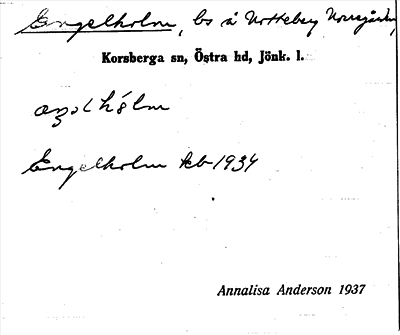 Engelholm, bs å Notteberg Norrgården,
Korsberga sn, Östra hd, Jönk. l.
Engelholm kb 1934
Annalisa Anderson 1937